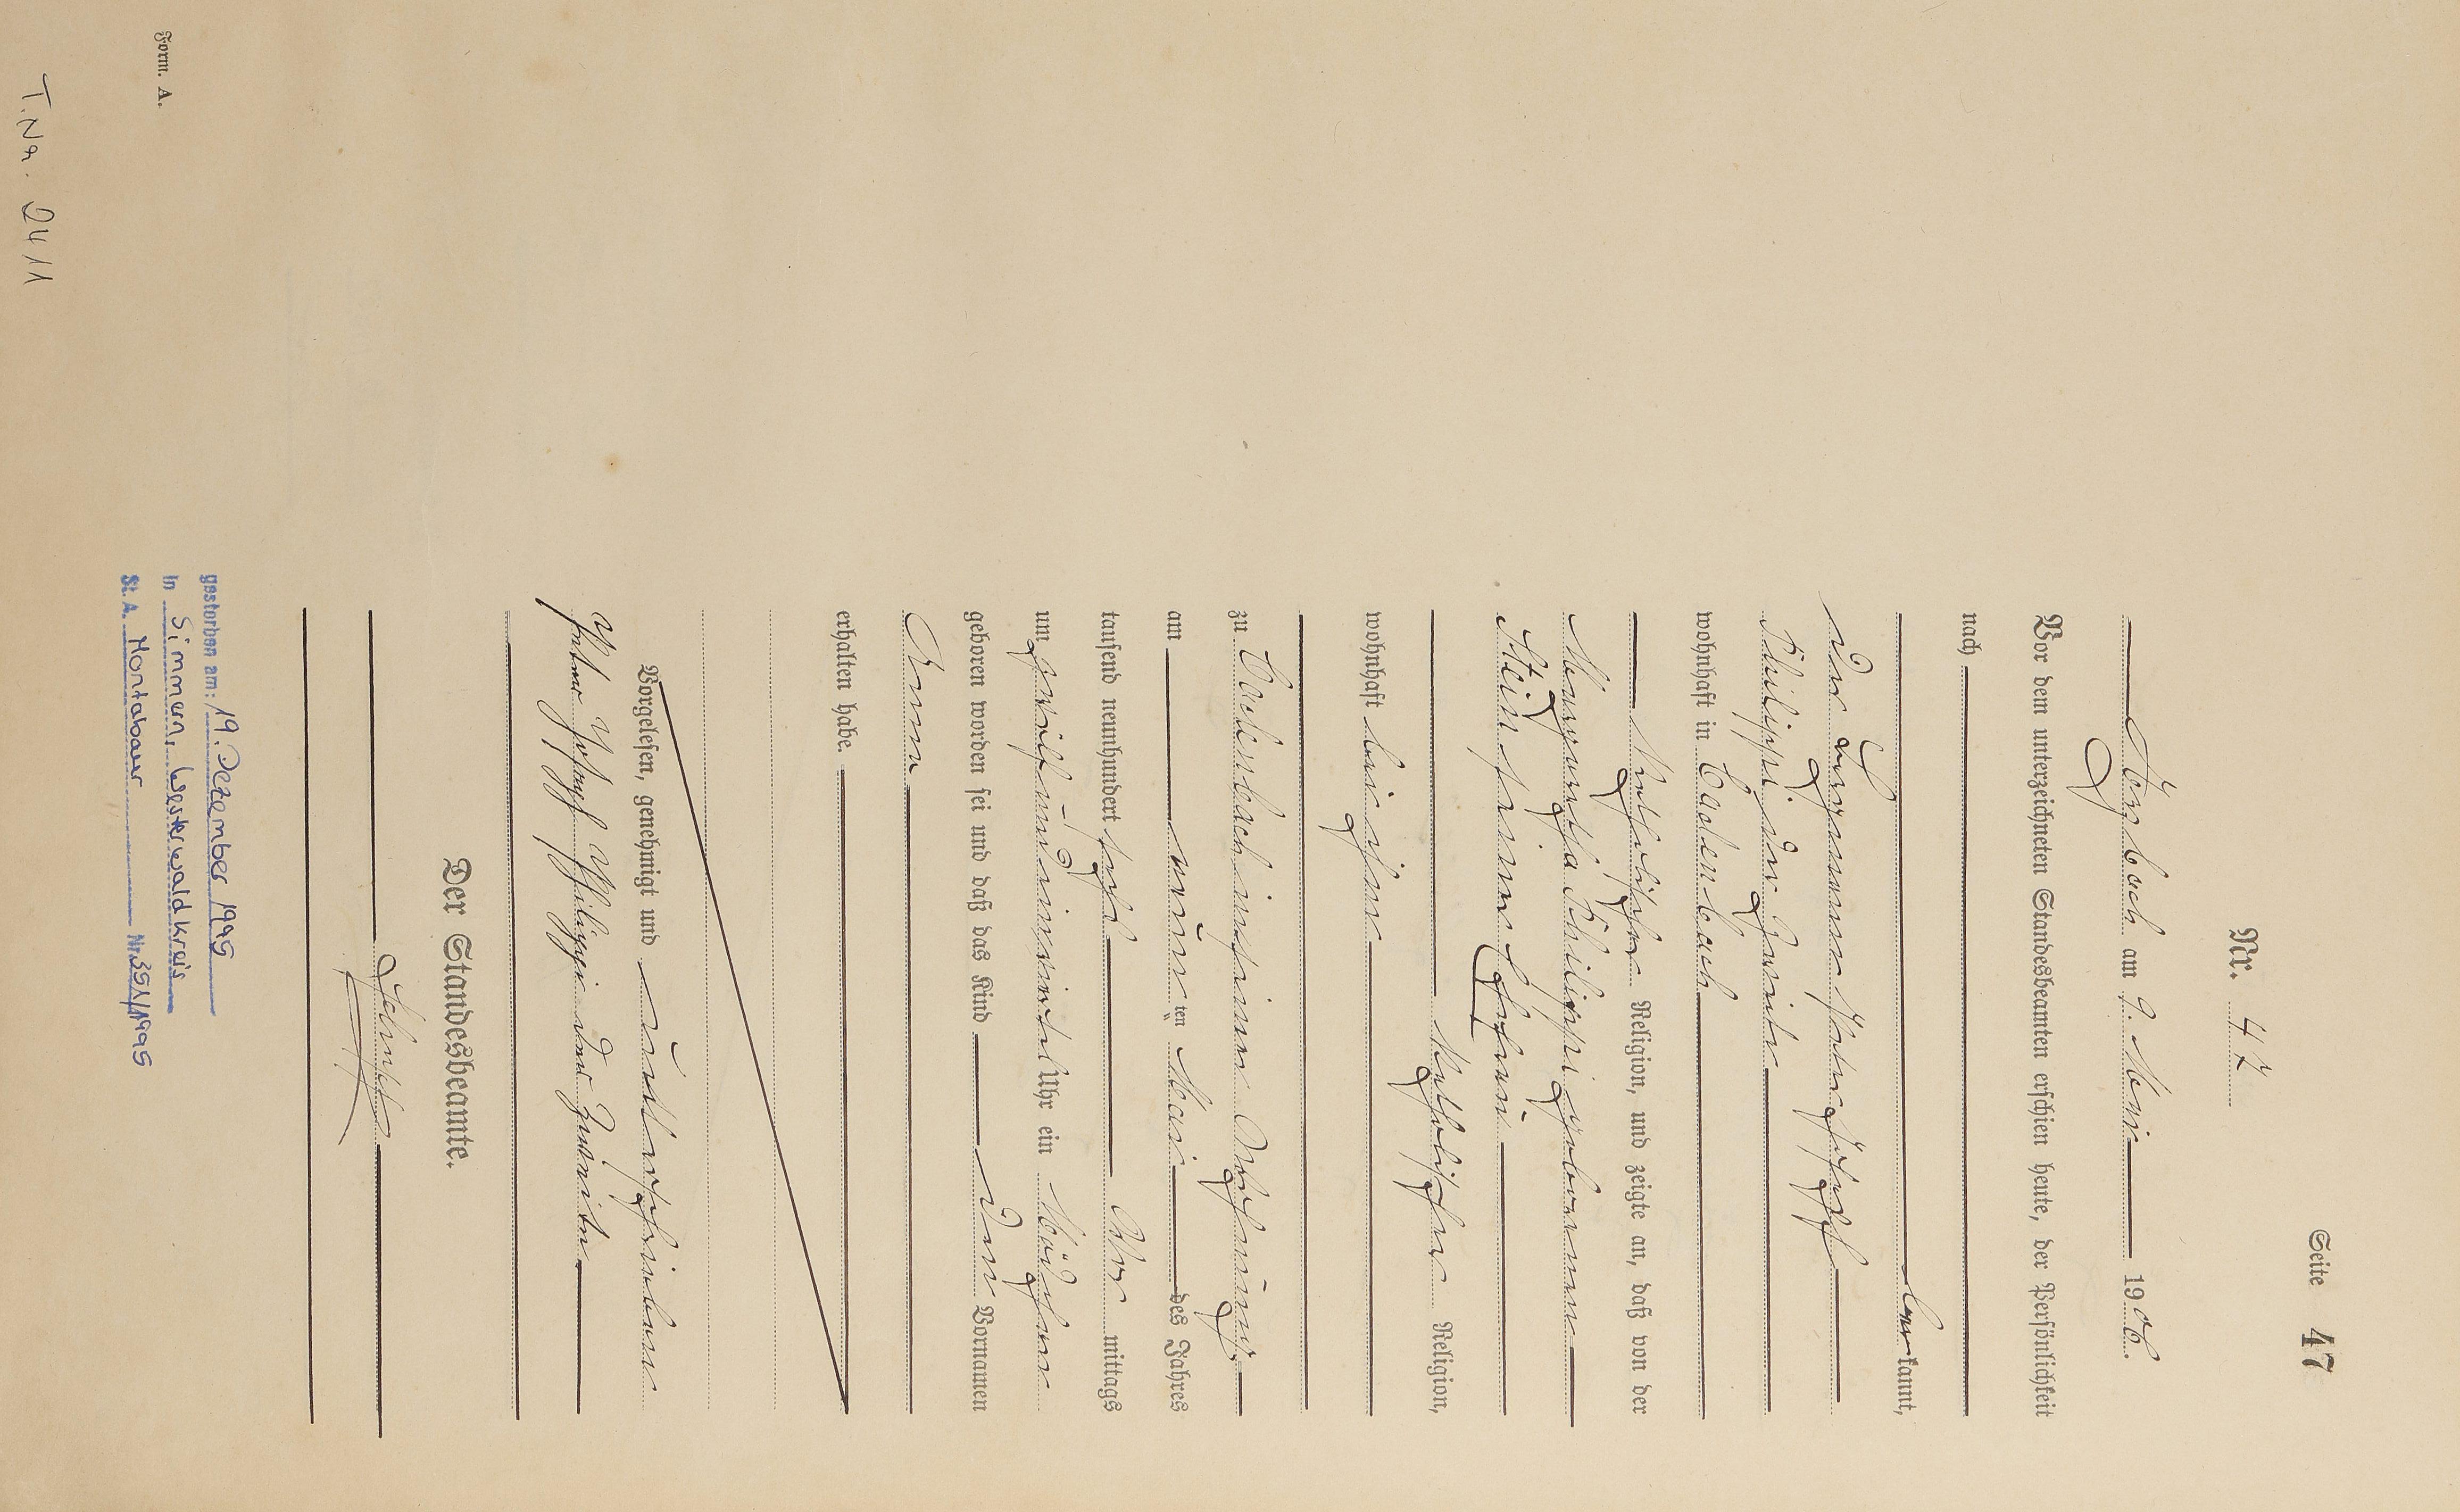 Seite 47
Nr. 47
Arzbach am 9. Mai 1906.
Vor dem unterzeichneten Standesbeamten erschien heute, der Persönlichkeit
nach
be kannt,
der Bergmann Peter Joseph
Philippi, der Zweite
wohnhaft in Cadenbach
katholischer Religion, und zeigte an, daß von der
Margaretha Philippi geborenen
Stein seiner Ehefrau
katholischer Religion,
wohnhaft bei ihm
zu Cadenbach in seiner Wohnung
am neunten Mai des Jahres
tausend neunhundert sechs Vor mittags
um zwölf und einviertel Uhr ein Mädchen
geboren worden sei und daß das Kind den Vornamen
Anna
erhalten habe.
Vorgelesen, genehmigt und unterschrieben
Peter Joseph Philippi der Zweite
Der Standesbeamte.
gestorben am: 19. Dezember 1995
in Simmern, Westerwaldkreis
St.A. Montabaur Nr. 351/1995
Form. A.
T.Nr. 24 11